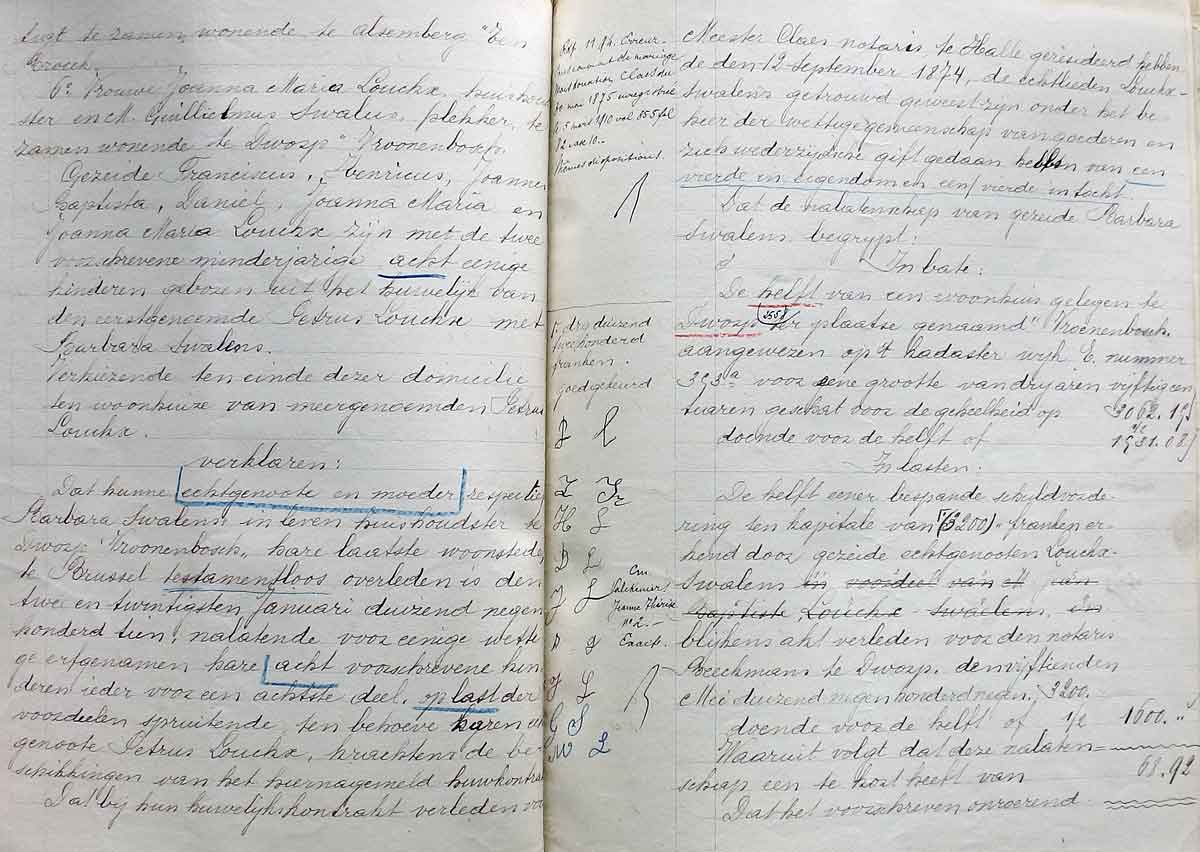 te zamen wonende te Alsemberg "Ten
Broeck.
6° Vrouwe Joanna Maria Louckx, huishoud-
ster en M. Guillielmus Swalus, plekker, te
zamen wonende te Dworp "Vroonenbosch.
Gezeide Franciscus, Henricus, Joannes
Baptista, Daniel, Joanna Maria en
Joanna Maria Louckx zijn met de twee
voorschrevene minderjarige acht eenige
kinderen geboren uit het huwelijk van
den eerstgenoemde Petrus Louckx met
Barbara Swalens.
Verkiezende ten einde dezer domicilie
ten woonhuize van meergenoemden Petrus
Louckx.
verklaren:
Dat hunne echtgenoote en moeder respectiev
Barbara Swalens in leven huishoudster te
Dworp Vroonenbosch, hare laatste woonstede,
te Brussel testamentloos overleden is den
twe en twintigsten Januari duizend negen
honderd tien, nalatende voor eenige wetti
ge erfgenamen hare acht voorschrevene kin
deren ieder voor een achtste deel, op last der
voordeelen spruitende ten behoeve haren echt
genoote Petrus Louckx, krachtens de be
schikkingen van het hiernagemeld huwkontrakt
Dat bij hun huwelijkskontrakt verleden voor
11.94. Erreur.
contrat de mariage
Claes du
mai 1875 enregistré
5 mars 1910 vol 555 fol
92. case 10.
Mêmes dispositions.
drij duizend
tweehonderd
franken.
goedgekeurd
P L
F Fr
H L
B L
J L
D J
J L
G S
W L
Jeanne Thérèse
n° 2. -
Exact.
Meester Claes notaris te Halle gerisideerd hebben
de den 12 September 1874, de echtlieden Louckx-
Swalens getrouwd geweest zijn onder het be
heer der wettige gemeenschap van goederen en
zich wederzijdsche gift gedaan hebben van een
vierde in eigendom en een vierde in tocht.
Dat de nalatenschap van gezeide Barbara
Swalens begrypt:
In bate:
De helft van een woonhuis gelegen te
Dworp ter plaatse genaamd "Vroenenbosch
5558
aangewezen op 't kadaster wijk E. nummer
393a voor eene grootte van drij aren vijftig cen
tiaren geschat voor de geheelheid op 3062.17
doende voor de helft of 1/2 1531.08
In lasten.
De helft eener bespande schuldvorde-
ring ten kapitale van (3200) franken er-
kend door gezeide echtgenooten Louckx-
Swalens in voordeel van
Baptiste Louckx-Swalens in
blijkens akt verleden voor den notaris
Beeckmans te Dworp den vijftienden
Mei duizend negen honderd negen; 3200.
doende voor de helft of 1/2 1600."
Waaruit volgt dat deze nalaten-
schap een te kort heeft van 68.92
Dat het voorschreven onroerend